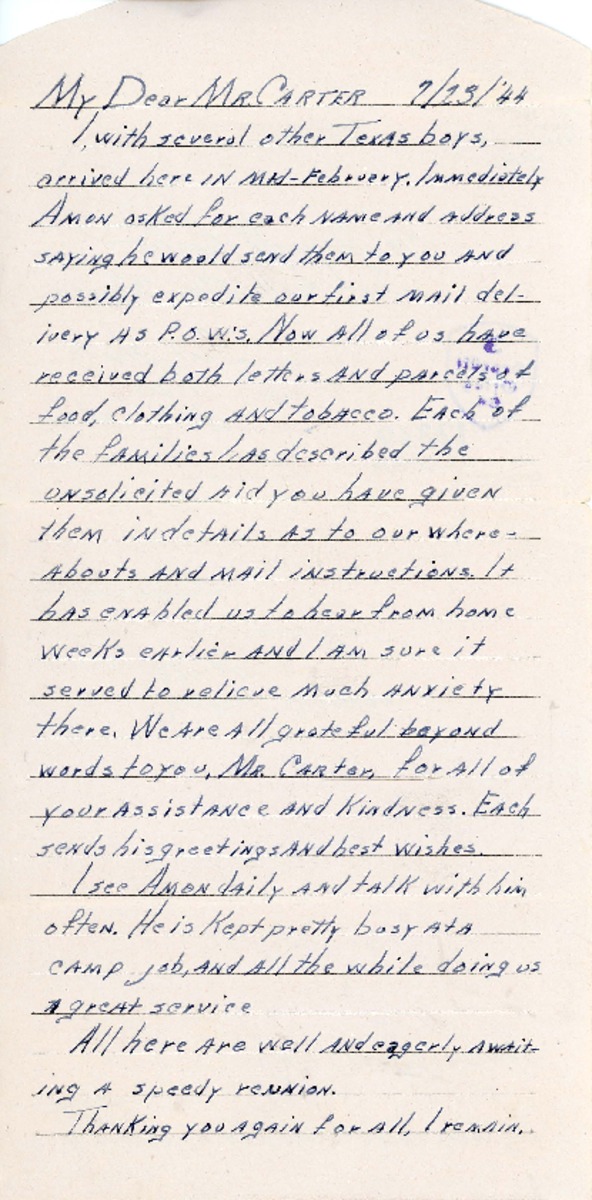 My Dear Mr. Carter 7/23/'44
I, with several other Texas boys,
arrived here in mid-February. Immediately
Amon asked for each name and address
saying he would send them to you and
possibly expedite our first mail del-
ivery as P.O.W.'s. Now all of us have
received both letters and parcels of
food, clothing and tobacco. Each of
the families has described the
unsolicited aid you have given
them in details as to our where-
abouts and mail instructions. It
has enabled us to hear from home
weeks earlier and I am sure it
served to relieve much anxiety
there. We are all grateful beyond
words to you, Mr. Carter, for all of
your assistance and kindness. Each
sends his greetings and best wishes.
I see Amon daily and talk with him
often. He is kept pretty busy at a
camp job, and all the while doing us
a great service
All here are well and eagerly await-
ing a speedy reunion.
Thanking you again for all, I remain,